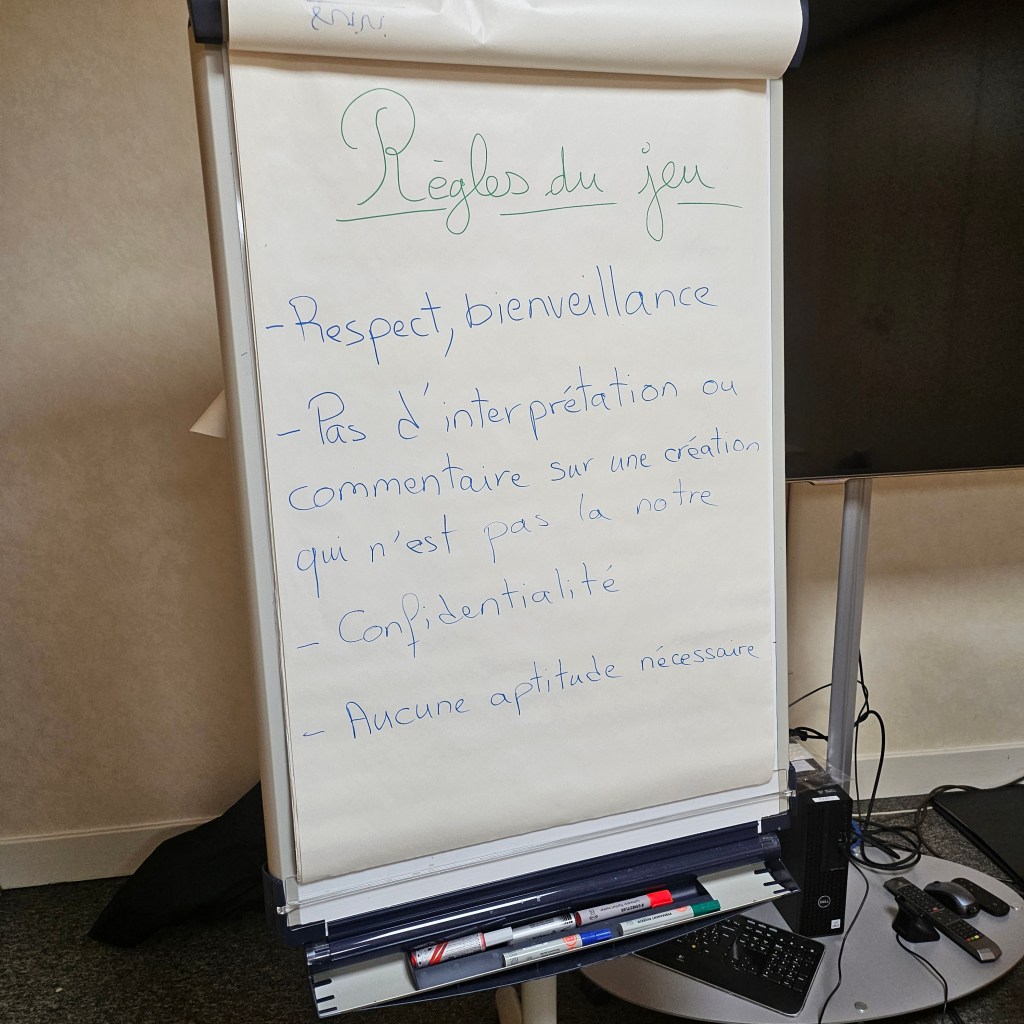 Règles du jeu
- Respect, bienveillance
- Pas d'interprétation ou
commentaire sur une création
qui n'est pas la notre
- Confidentialité
- Aucune aptitude nécessaire
DELL